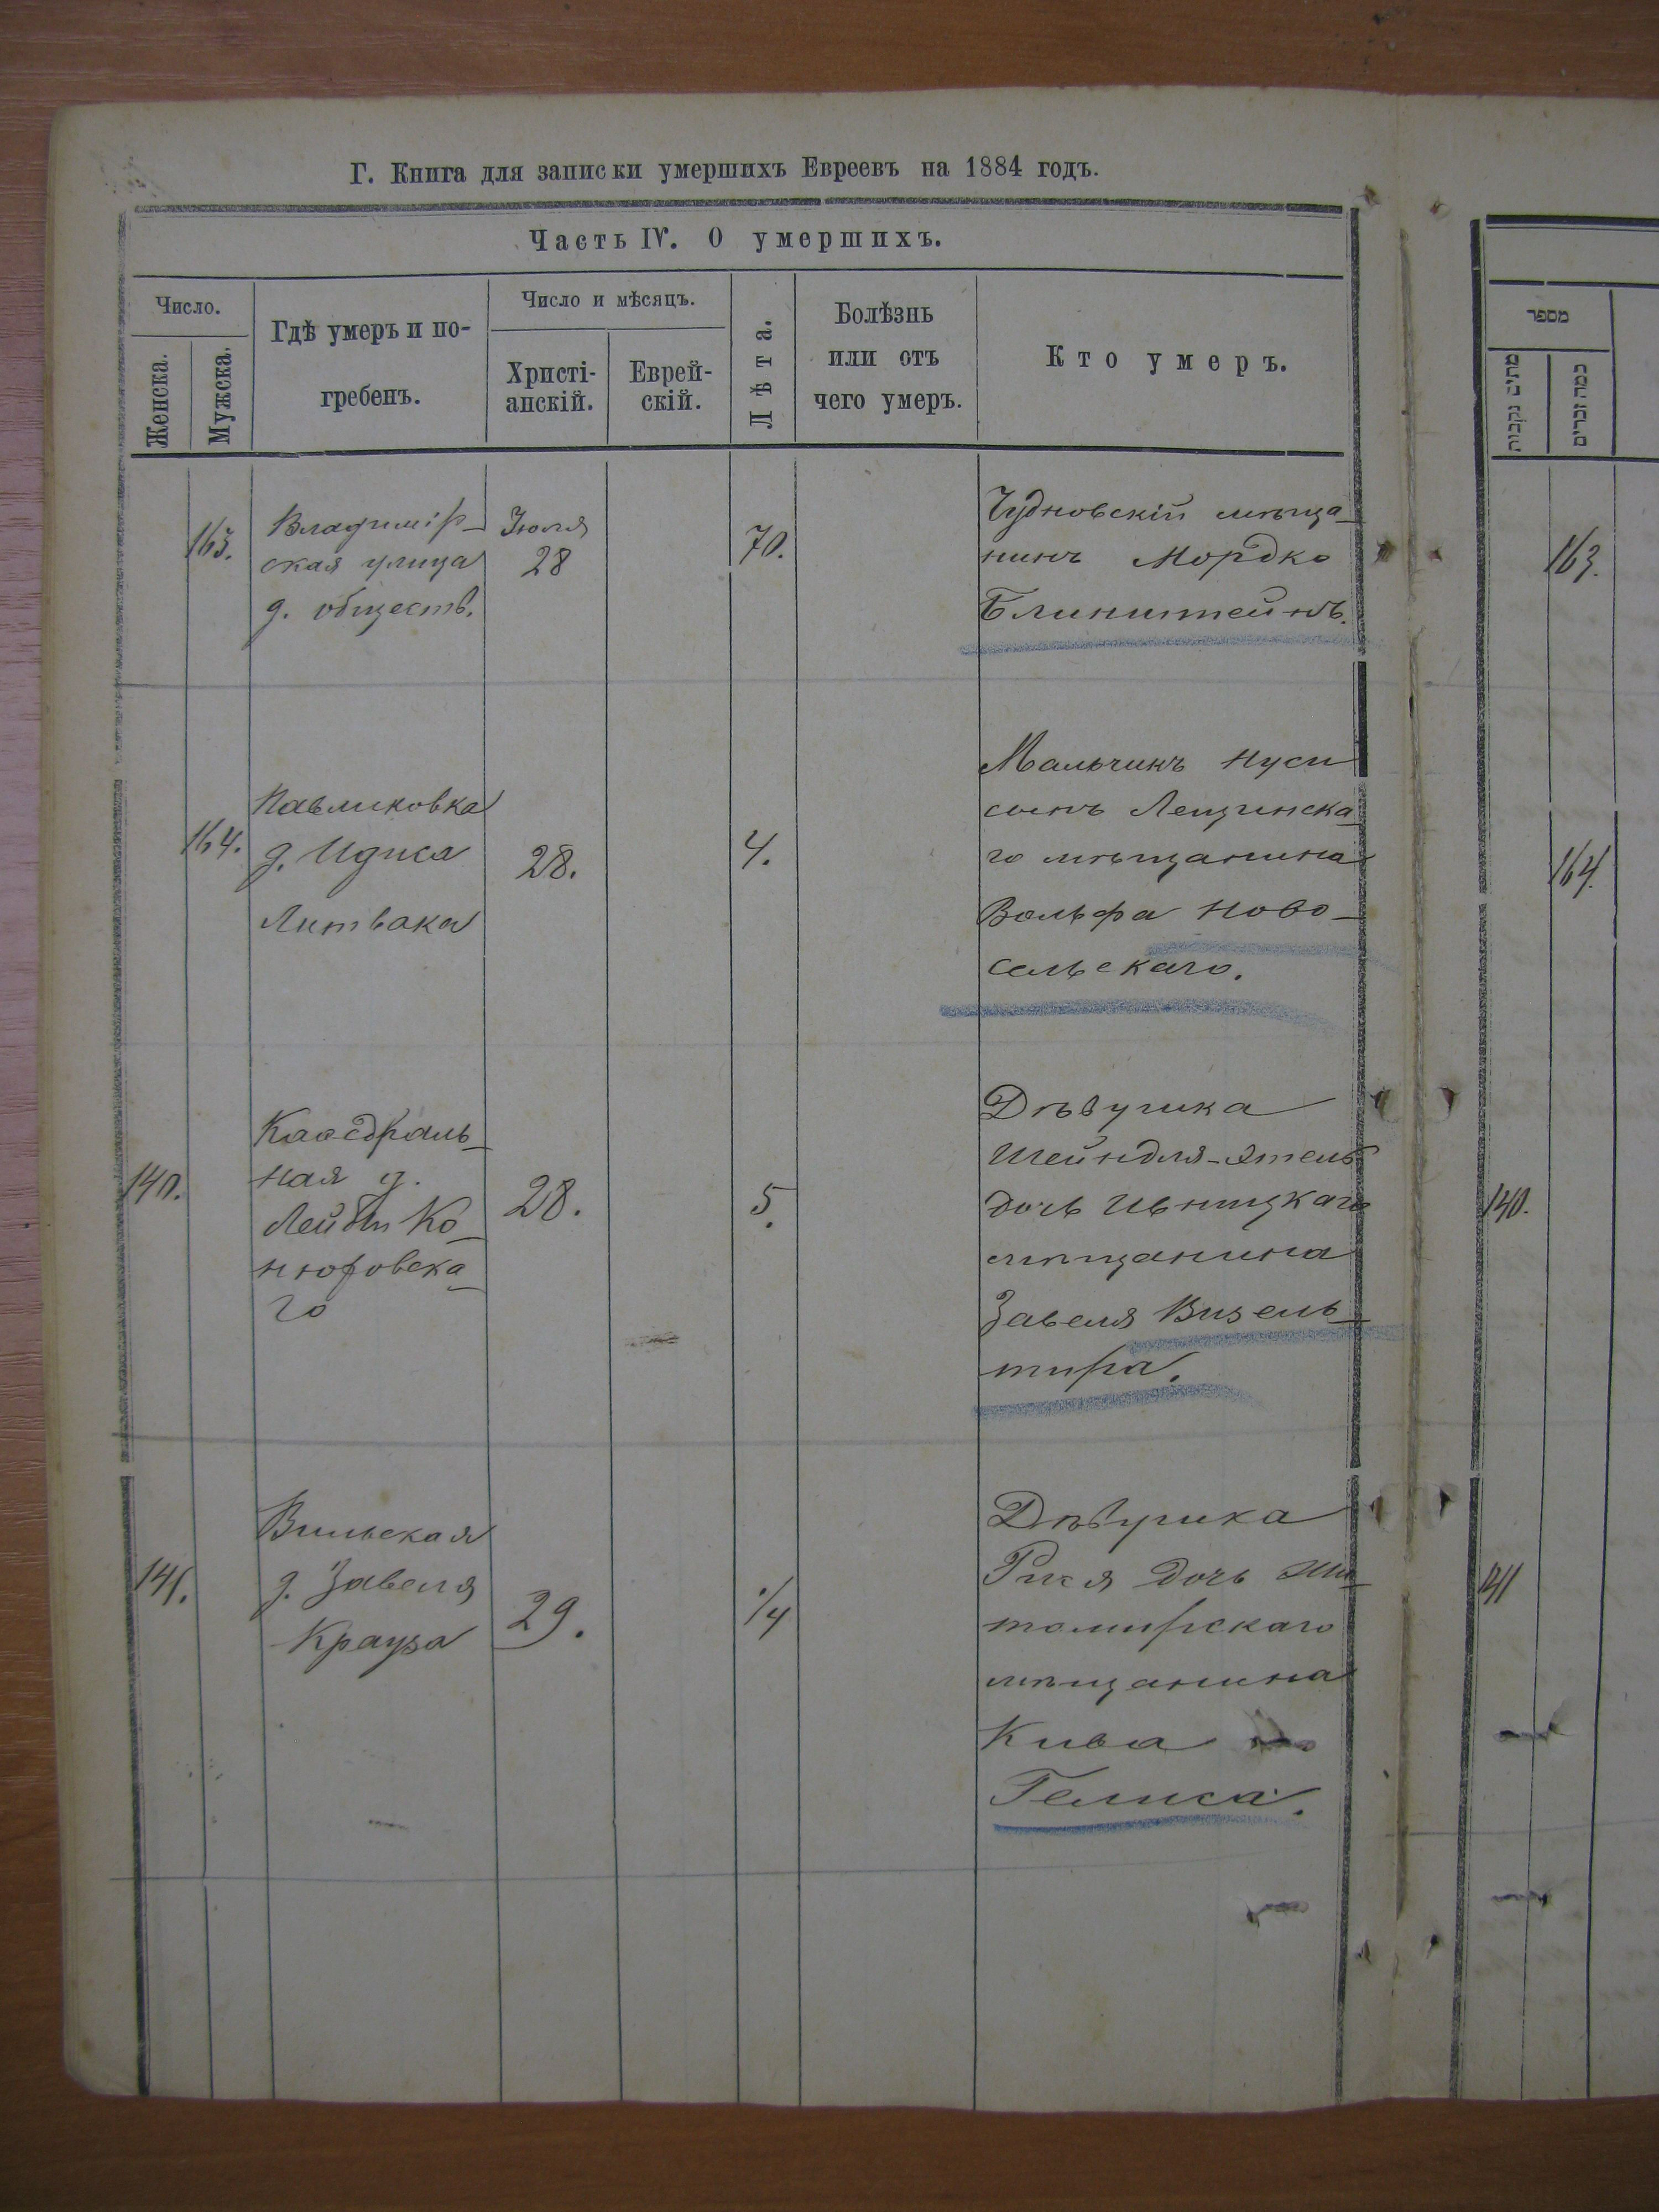 Г. Книга для записки умершихъ Евреевъ на 1884 годъ.
Часть IV. О умершихъ.
Число.
Женска.
Мужска.
Гдѣ умеръ и по-
гребенъ.
Число и мѣсяцъ.
Христі-
анскій.
Еврей-
скій.
Лѣта.
Болѣзнь
или отъ
чего умеръ.
Кто умеръ.
163.
Владимір-
ская улица
д. обществ.
Іюля
28
70.
Чудновскій мѣща-
нинъ Мордко
Блинштейнъ.
164.
Павликовка
д. Идиса
Литвака
28.
4.
Мальчикъ Нуси
сынъ Лещинска-
го мѣщанина
Вольфа Ново-
сельскаго.
140.
Каѳедраль-
ная д.
Лейби Ко-
нюховска-
го
28.
5.
Дѣвушка
Шейндля-Этель
дочь Ивницкаго
мѣщанина
Завеля Визель-
тира.
141.
Вильская
д. Завеля
Крауза
29.
1/4
Дѣвушка
Рися дочь Жи-
томирскаго
мѣщанина
Кива
Гелиса.
מספר
מתים נקבות
כמה זכרים
163.
164.
140.
141